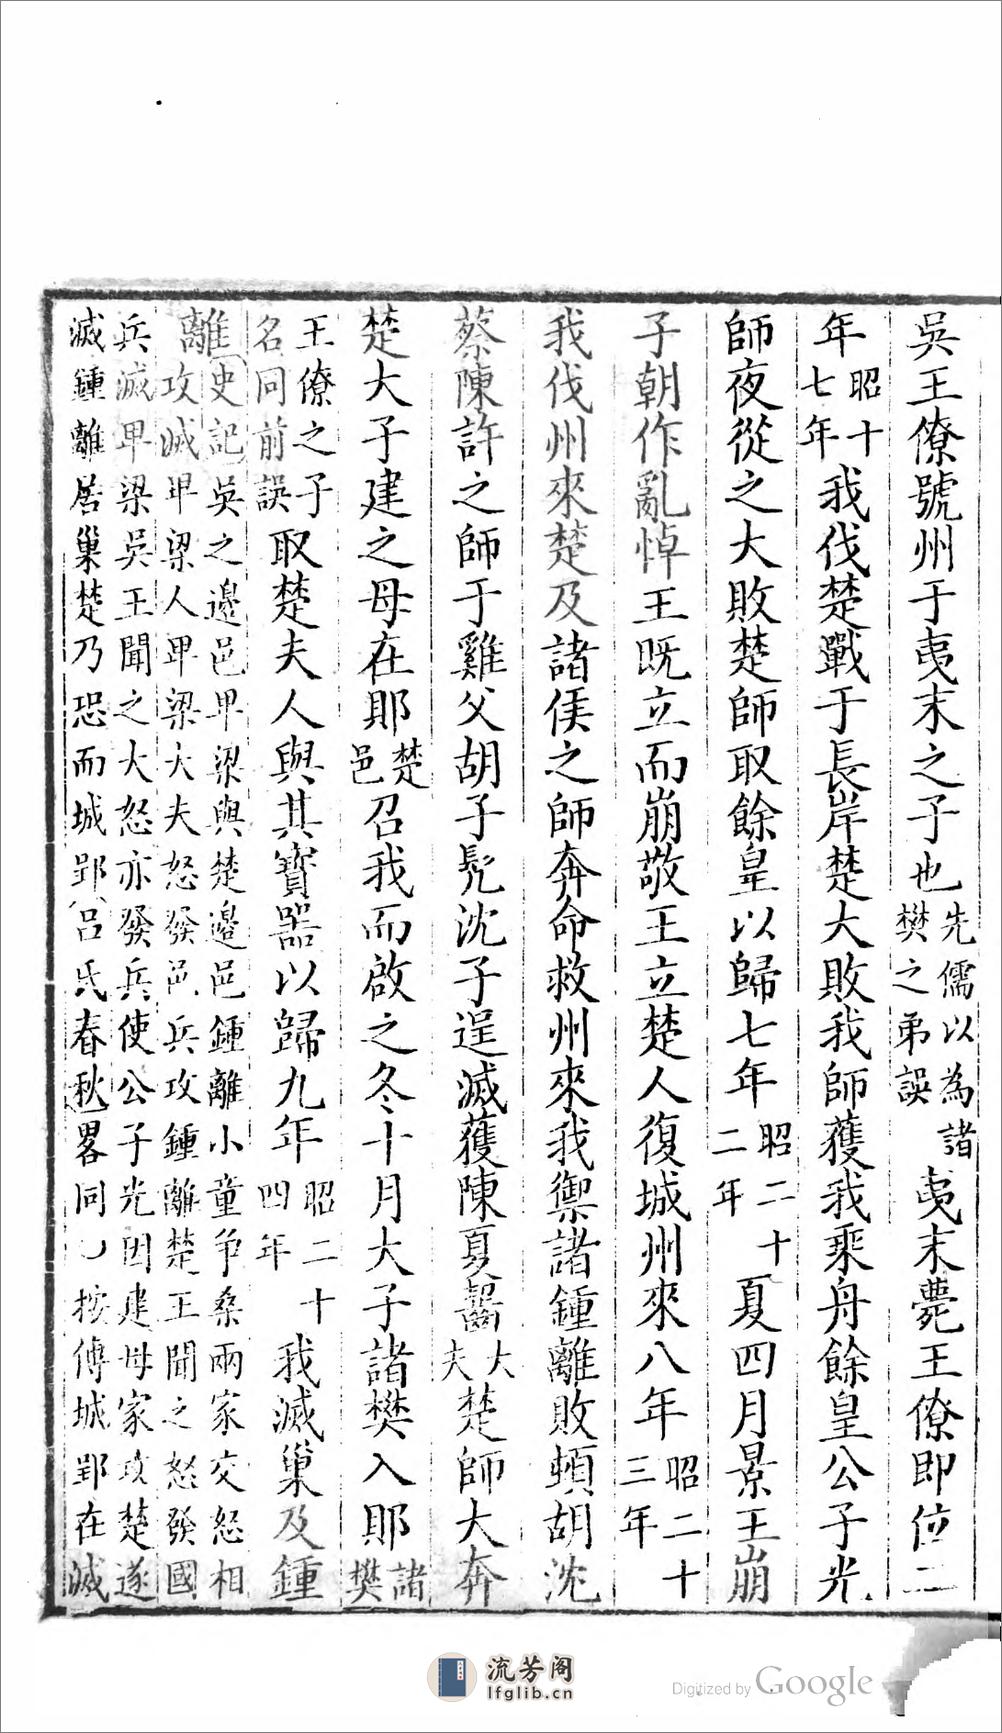 吳王僚號州于夷末之子也先儒以為諸樊之弟誤夷末薨王僚即位二
年昭十七年我伐楚戰于長岸楚大敗我師獲我乘舟餘皇公子光
師夜從之大敗楚師取餘皇以歸七年昭二十二年夏四月景王崩
子朝作亂悼王既立而崩敬王立楚人復城州來八年昭二十三年
我伐州來楚及諸侯之師奔命救州來我禦諸鍾離敗頓胡沈
蔡陳許之師于雞父胡子髡沈子逞滅獲陳夏齧大夫楚師大奔
楚大子建之母在郹楚邑召我而啟之冬十月大子諸樊入郹諸樊
王僚之子名同前誤取楚夫人與其寶器以歸九年昭二十四年我滅巢及鍾
離史記吳之邊邑卑梁與楚邊邑鍾離小童爭桑兩家交怒相
攻滅卑梁人卑梁大夫怒發邑兵攻鍾離楚王聞之怒發國
兵滅卑梁吳王聞之大怒亦發兵使公子光因建母家攻楚遂
滅鍾離居巢楚乃恐而城郢呂氏春秋畧同按傳城郢在滅
流芳阁
lfglib.cn
Digitized by Google